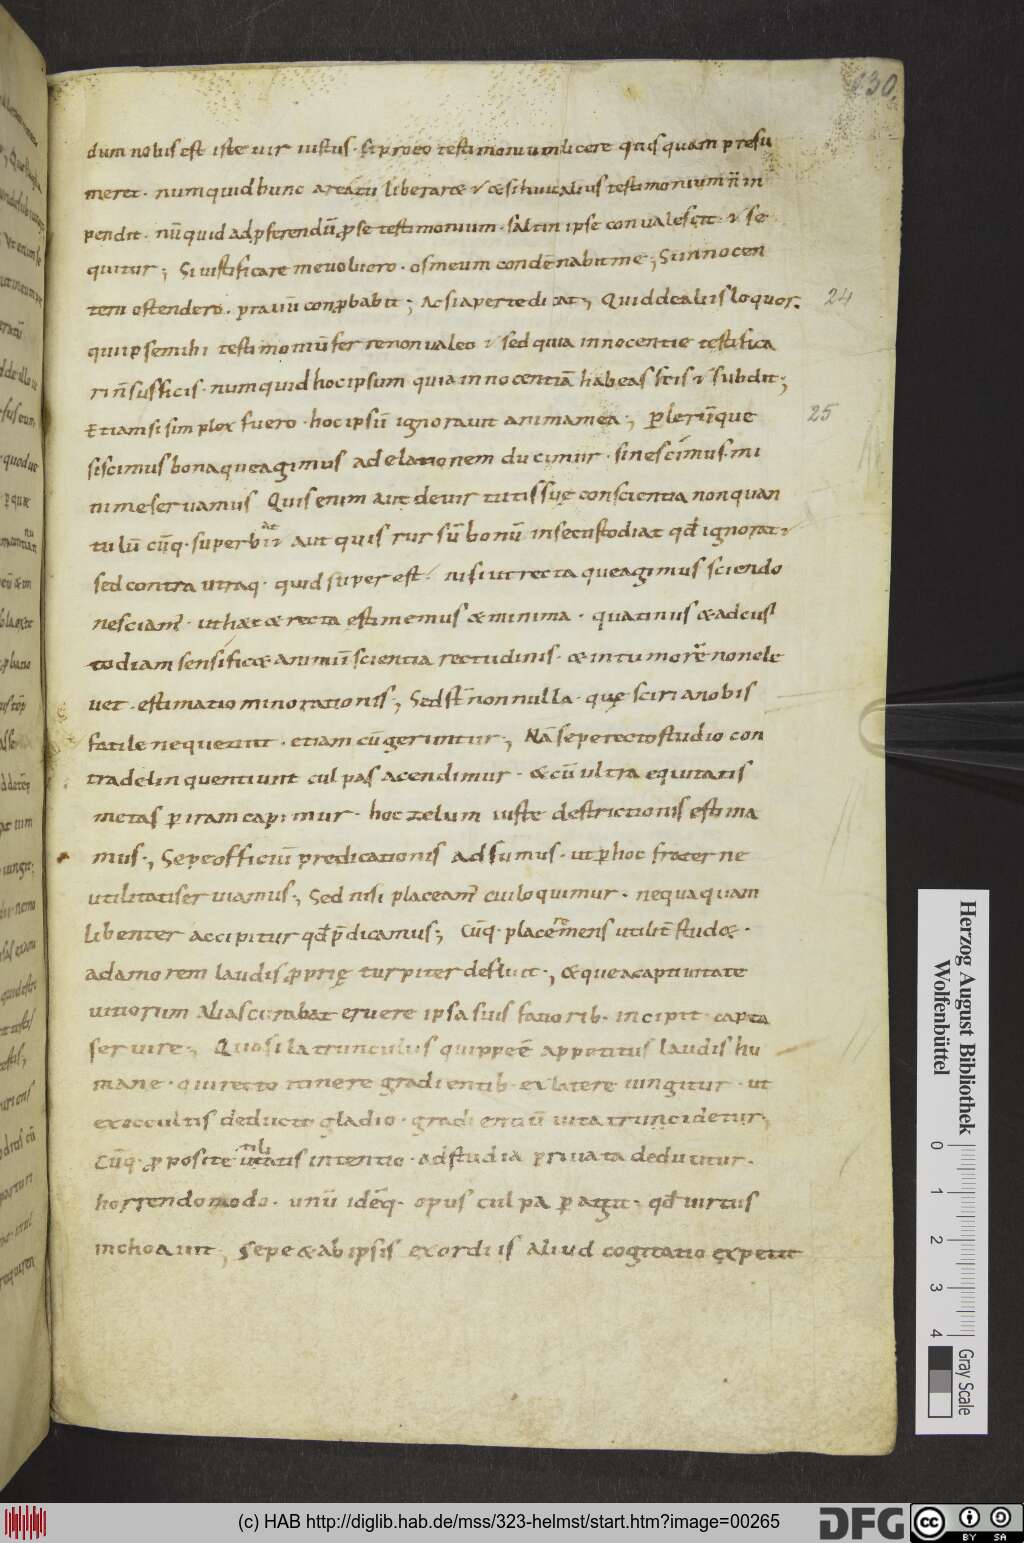 130
dum nobis est iste uir iustus · si pro eo testimonium dicere quisquam presu
meret · numquid hunc
pendit · nūquid ad ꝓferendū ꝓ se testimonium · saltim ipse conualescit · & se
quitur ; Si iustificare me uoluero · os meum condēnabit me ; Si innocen
tem ostendero · prauū conꝓbabit ; Ac si aperte dicat ; Quid de aliis loquor · 24
qui ipse mihi testimoniū ferre non ualeo · sed quia innocentie testifica
ri n̄ sufficis · numquid hoc ipsum quia innocentiā habeas scis · & subdit ;
Etiam si simplex fuero · hoc ipsū ignorauit anima mea ; Plerūque 25
si scimus bona que agimus ad elationem ducimur · si nescimus · mi
nime seruamus Quis enim aut de uirtutis suę conscientia non quan
tulū cūq· superbiat aut quis rursū bonū in se custodiat qđ ignorat
sed contra utraq· quid super est · nisi ut recta que agimus sciendo
nesciam᷒ · ut hæc & recta estimemus & minima · quatinus & ad cus
todiam sensificæ animū scientia rectudinis · & in tumore non ele
uet · estimatio minorationis · ; Sed sūt nonnulla · quę sciri a nobis
facile nequeunt · etiam cū geruntur · ; Nā sepe recto studio con
tra delinquentium culpas acendimur · & cū ultra equitatis
metas p iram capimur · hoc zelum iuste destrictionis estima
mus · ; Sepe officiū predicationis adsumus · ut p hoc fraterne
utilitati seruiamus · ; Sed nisi placeam᷒ cui loquimur · nequaquam
libenter accipitur qđ p̄dicamus ; Cūq· placere mens utilit̄ studæ ·
ad amorem laudis ꝓprię turpiter defluit · ; & que a captiuitate
uitiorum alias curabat eruere ipsa suis fauorib· incipit capta
seruire · ; Quasi latrunculus quippe ē appetitus laudis hu
mane · qui recto itinere gradientib· ex latere iungitur · ut
ex occultis educto gladio · gradientiū uita trucidetur ·
Cūq· ꝓposite utilitatis intentio · ad studia priuata deducitur ·
horrendo modo · unū idēq· opus culpa p agit · qđ uirtus
inchoauit ; Sepe & ab ipsis exordiis aliud cogitatio expetit
Herzog August Bibliothek
Wolfenbüttel
0 1 2 3 4
Gray Scale
(c) HAB http://diglib.hab.de/mss/323-helmst/start.htm?image=00265
DFG
cc BY SA